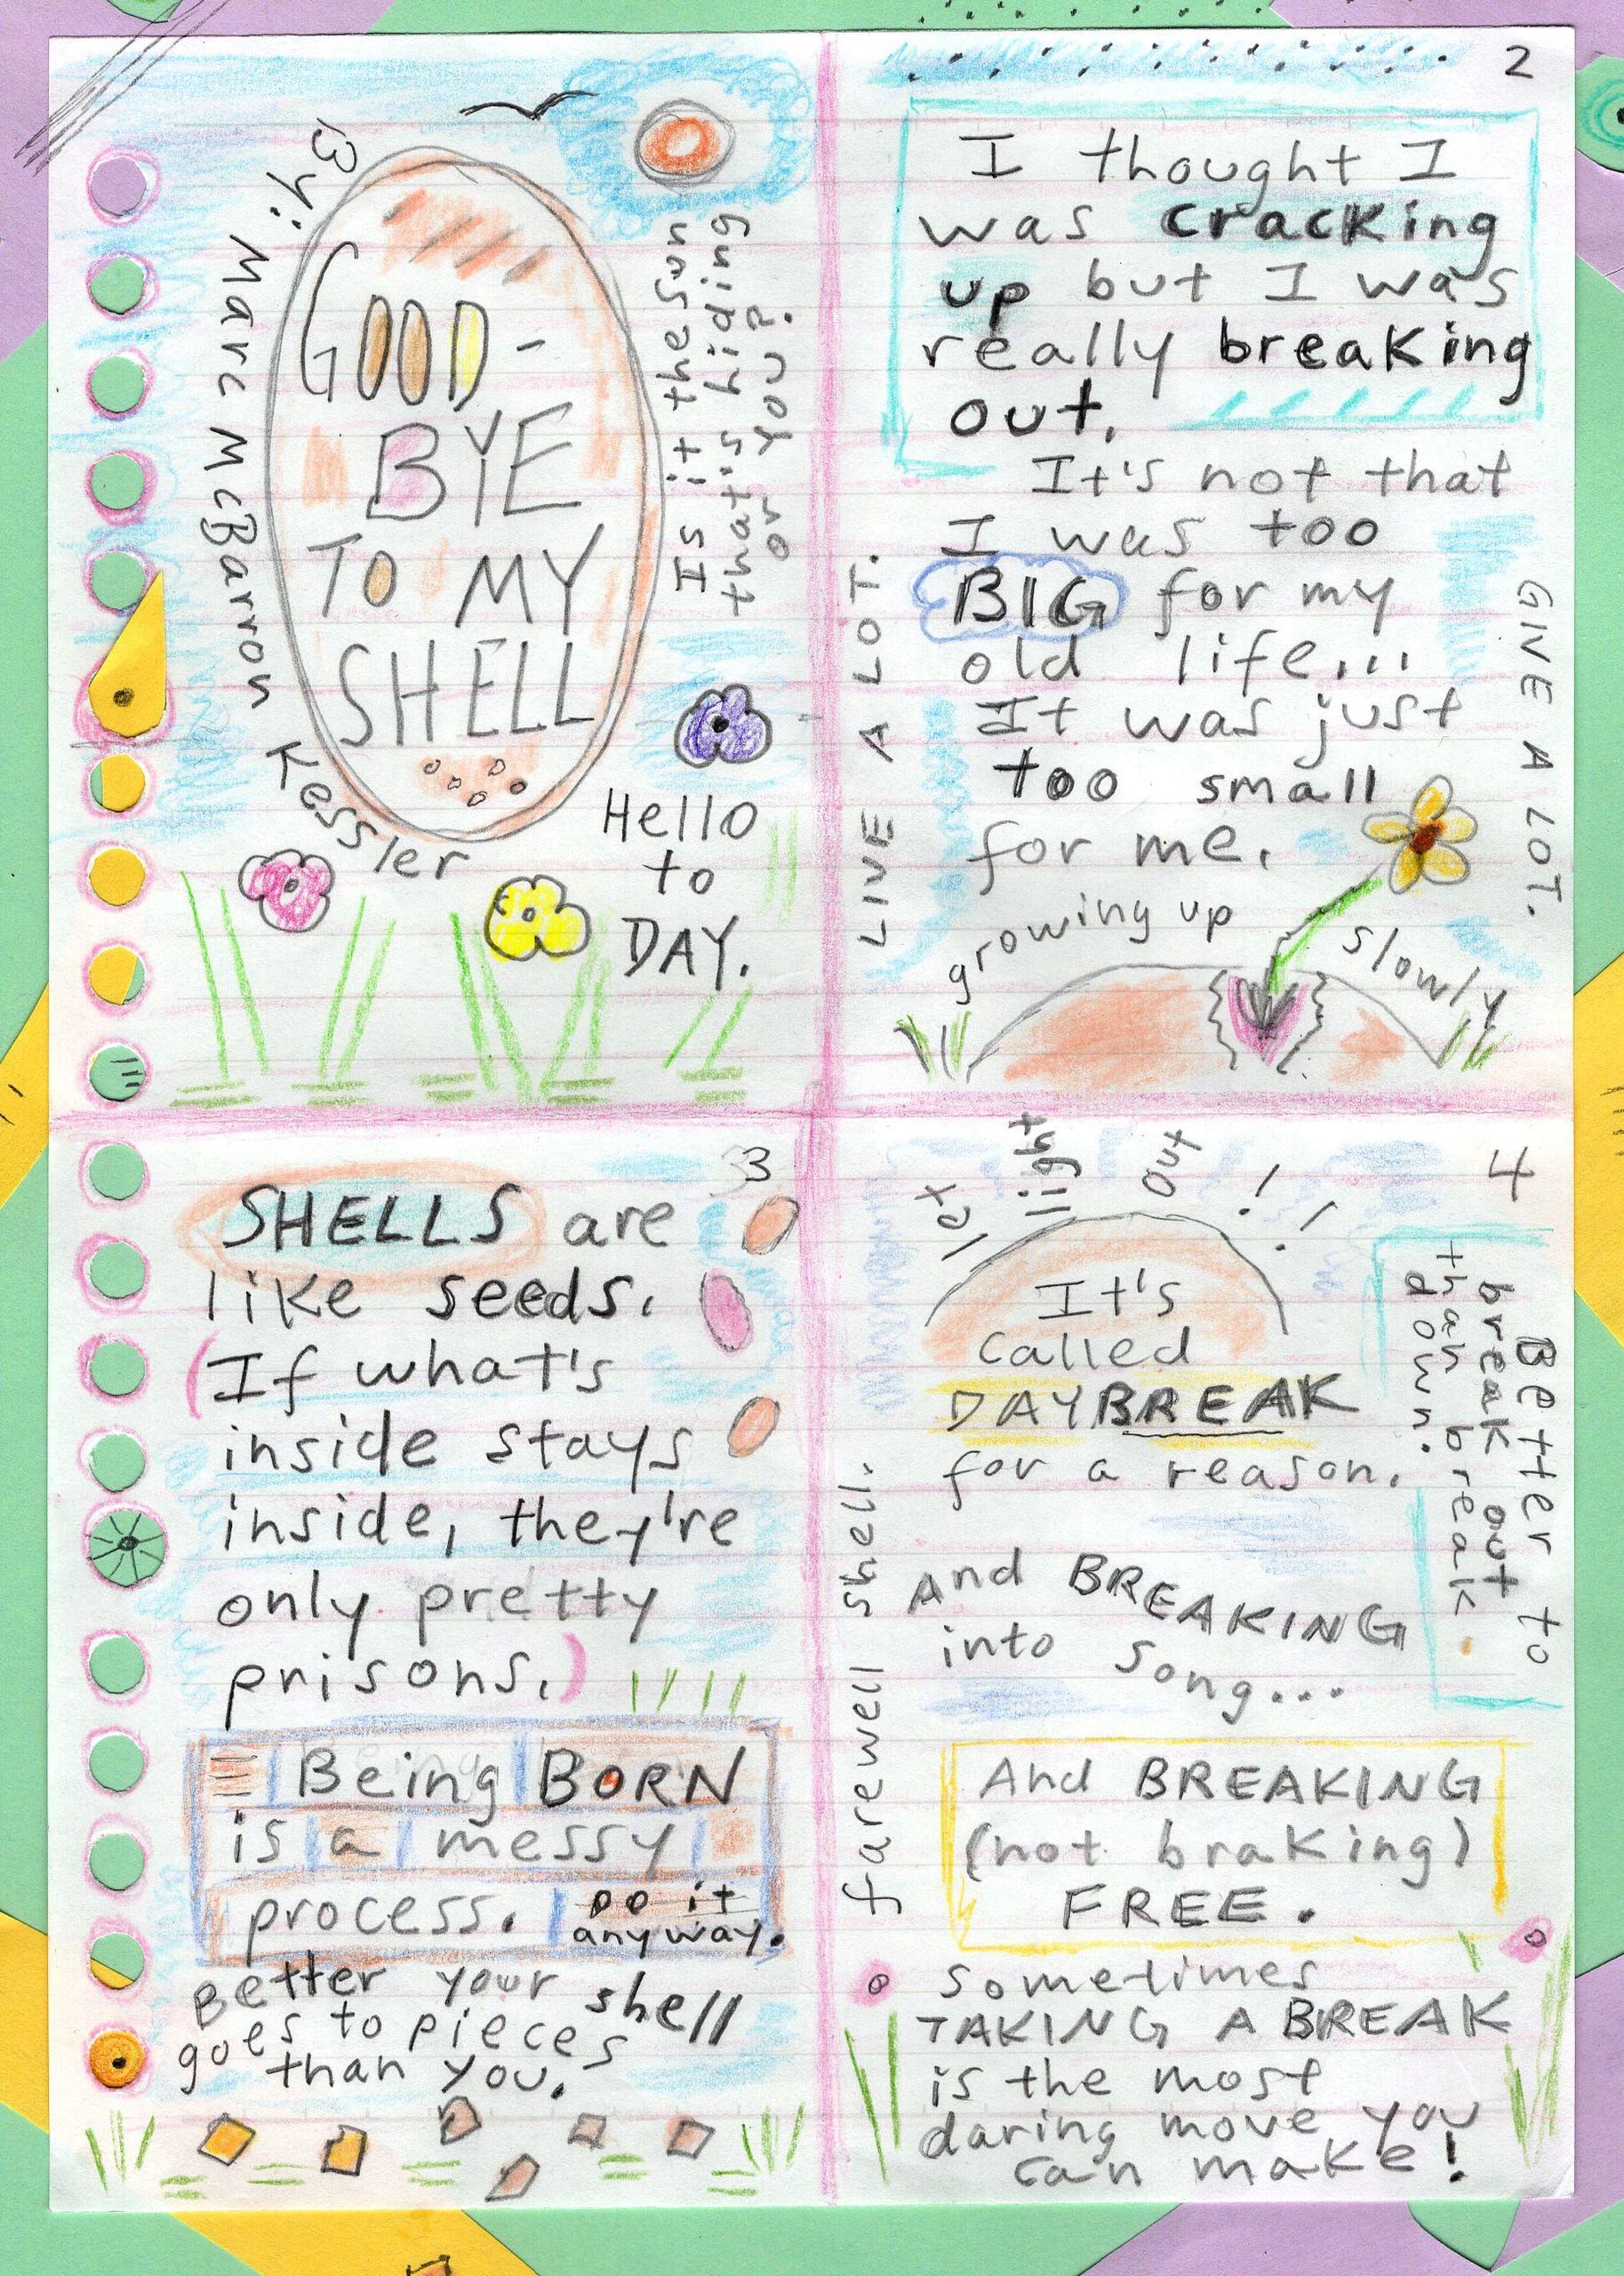 By: Marc McBarron Kessler
GOOD-
BYE
TO MY
SHELL
Is it the sun
that's hiding
or you?
Hello
to
DAY.
2
I thought I
was cracking
up but I was
really breaking
out.
It's not that
I was too
BIG for my
old life...
It was just
too small
for me.
growing up slowly
LIVE A LOT.
GIVE A LOT.
3
SHELLS are
like seeds.
(If what's
inside stays
inside, they're
only pretty
prisons.)
Being BORN
is a messy
process. Do it
anyway.
Better your shell
goes to pieces
than you.
4
let light out!!
It's
called
DAYBREAK
for a reason.
And BREAKING
into song...
Better to
break out
than break
down.
farewell shell.
And BREAKING
(not braking)
FREE.
Sometimes
TAKING A BREAK
is the most
daring move you
can make!